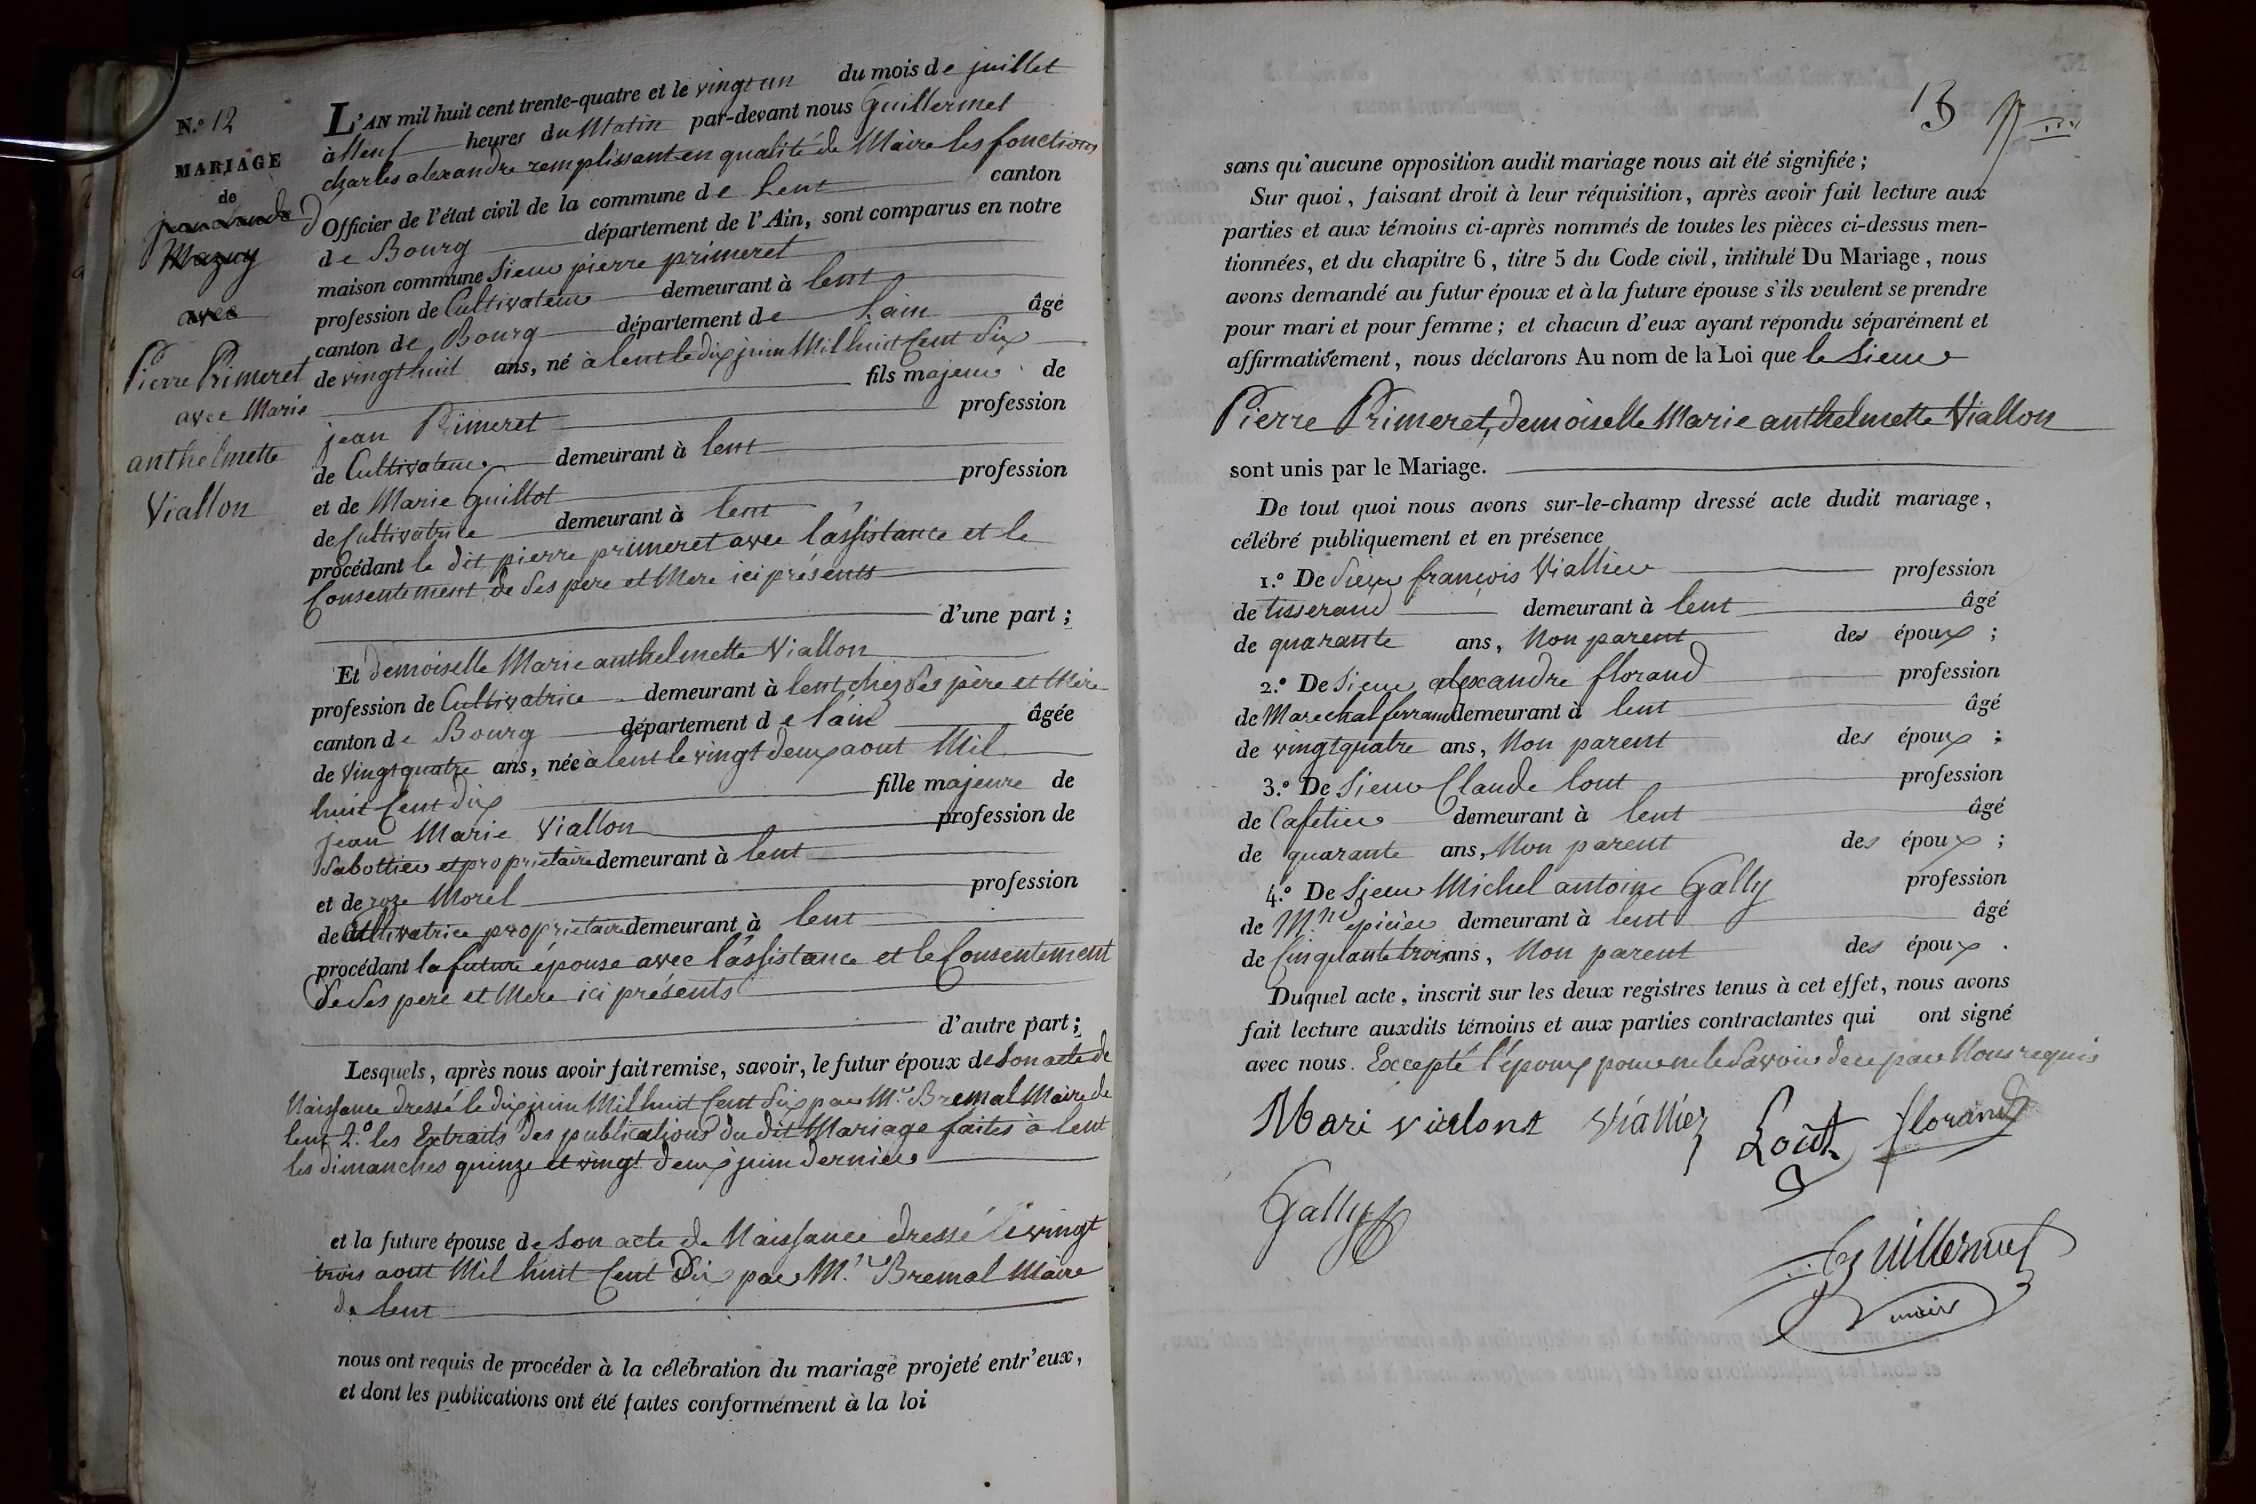 N.º 12
MARIAGE
de
Mazuy
avec
Pierre Primeret
avec Marie
anthelmette
Viallon
L'AN mil huit cent trente-quatre et le vingt un du mois de juillet
à Neuf heures du Matin par-devant nous Guillermet
charles alexandre remplissant en qualité de Maire les fonctions
d'Officier de l'état civil de la commune de Lent canton
de Bourg département de l'Ain, sont comparus en notre
maison commune Sieur pierre primeret
profession de Cultivateur demeurant à lent
canton de Bourg département de Lain âgé
de vingt huit ans, né à lent le dix juin Mil huit Cent Six
fils majeur de
jean Primeret profession
de Cultivateur demeurant à lent
et de Marie Guillot profession
de Cultivatrice demeurant à lent
procédant le dit pierre primeret avec l'assistance et le
Consentement de Ses pere et Mere ici présents
d'une part ;
Et demoiselle Marie anthelmette Viallon
profession de Cultivatrice demeurant à lent chez Ses père et Mère
canton de Bourg département de lain âgée
de Vingt quatre ans, née à lent le vingt deux aout Mil
huit Cent dix fille majeure de
Jean Marie Viallon profession de
Sabottier et propriétaire demeurant à lent
et de roze Morel profession
de Cultivatrice propriétaire demeurant à lent
procédant la future épouse avec l'assistance et le Consentement
de Ses pere et Mere ici présents
d'autre part ;
Lesquels, après nous avoir fait remise, savoir, le futur époux de Son acte de
Naissance dressé le dix juin Mil huit Cent Six par M.r Bremal Maire de
lent 2.º les Extraits des publications du dit Mariage faites à lent
les dimanches quinze et vingt deux juin dernier
et la future épouse de Son acte de Naissance dressé le vingt
trois aout Mil huit Cent Dix par M.r Bremal Maire
de lent
nous ont requis de procéder à la célébration du mariage projeté entr'eux,
et dont les publications ont été faites conformément à la loi
13
sans qu'aucune opposition audit mariage nous ait été signifiée ;
Sur quoi, faisant droit à leur réquisition, après avoir fait lecture aux
parties et aux témoins ci-après nommés de toutes les pièces ci-dessus men-
tionnées, et du chapitre 6, titre 5 du Code civil, intitulé Du Mariage, nous
avons demandé au futur époux et à la future épouse s'ils veulent se prendre
pour mari et pour femme ; et chacun d'eux ayant répondu séparément et
affirmativement, nous déclarons Au nom de la Loi que le Sieur
Pierre Primeret, demoiselle Marie anthelmette Viallon
sont unis par le Mariage.
De tout quoi nous avons sur-le-champ dressé acte dudit mariage,
célébré publiquement et en présence
1.º De Sieur françois Viallier profession
de tisserand demeurant à lent âgé
de quarante ans, Non parent des époux ;
2.º De Sieur alexandre florand profession
de Marechal ferrand demeurant à lent âgé
de vingt quatre ans, Non parent des époux ;
3.º De Sieur Claude lout profession
de Cafetier demeurant à lent âgé
de quarante ans, Non parent des époux ;
4.º De Sieur Michel antoine Gally profession
de M.nd epicier demeurant à lent âgé
de Cinquante trois ans, Non parent des époux .
Duquel acte, inscrit sur les deux registres tenus à cet effet, nous avons
fait lecture auxdits témoins et aux parties contractantes qui ont signé
avec nous. Excepté l'époux pour ne le Savoir de ce par Nous requis
Mari vialont Viallier Lout florand
Gally
Guillermet
maire